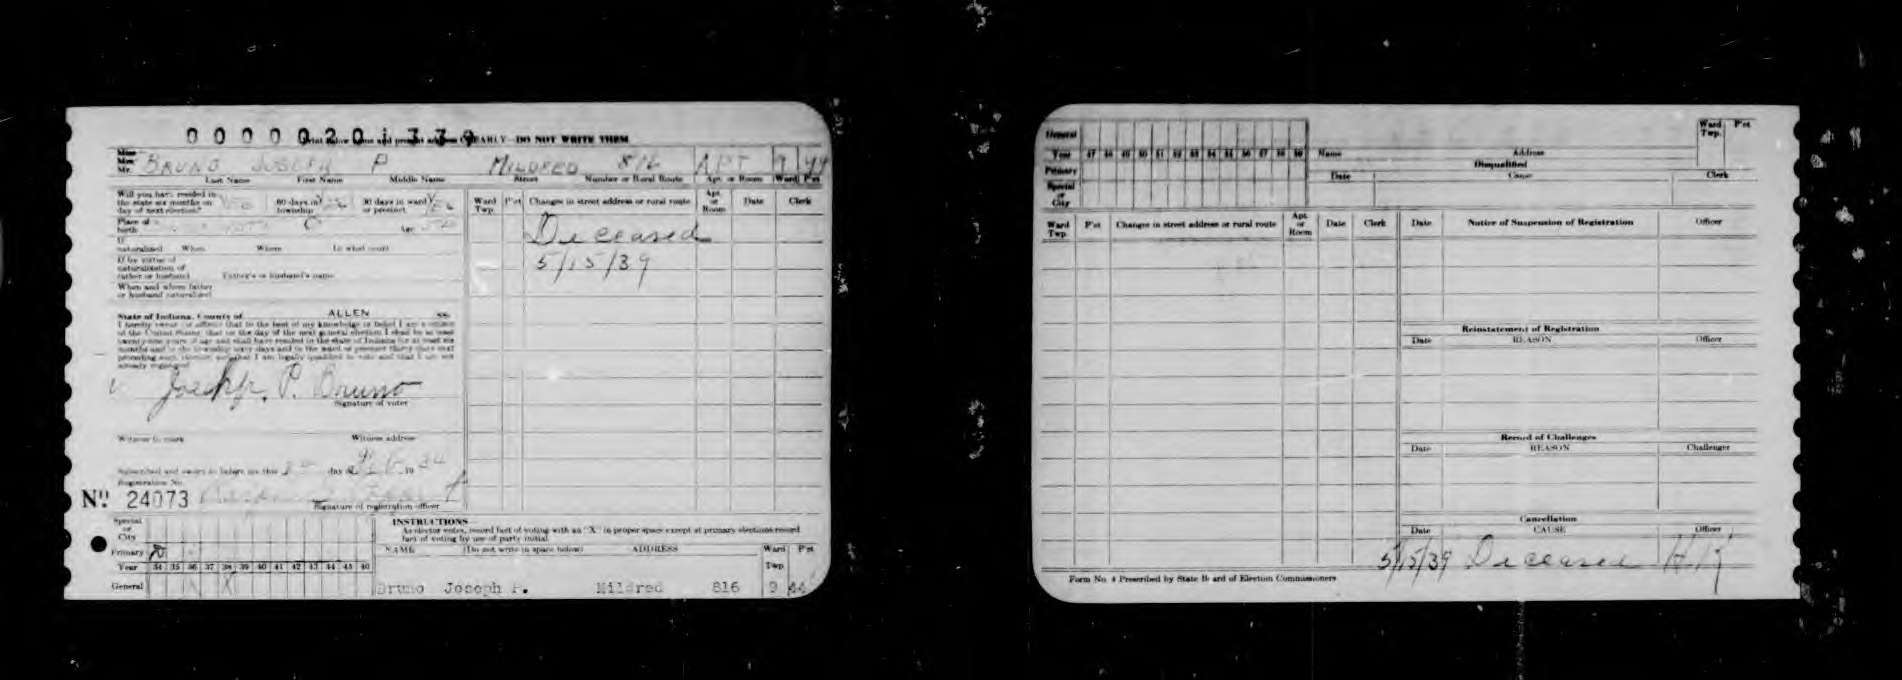 0 0 0 0 0 2 0 1 3 3 9
Print below name and present address CLEARLY—DO NOT WRITE THEM
Miss
Mrs.
Mr. BRUNO JOSEPH P MILDRED 816 APT 9 44
Last Name First Name Middle Name Street Number or Rural Route Apt. or Room Ward P'ct
Will you have resided in
the state six months on
day of next election? YES 60 days in township YES 30 days in ward or precinct YES
Place of birth Age
If naturalized When Where In what court
If by virtue of
naturalization of
father or husband Father's or husband's name
When and where father
or husband naturalized
State of Indiana, County of ALLEN ss.
I hereby swear (or affirm) that to the best of my knowledge or belief I am a citizen
of the United States; that on the day of the next general election I shall be at least
twenty-one years of age and shall have resided in the state of Indiana for at least six
months and in the township sixty days and in the ward or precinct thirty days next
preceding such election; and that I am legally qualified to vote and that I am not
already registered
Joseph P. Bruno
Signature of voter
Witness to mark Witness address
Subscribed and sworn to before me this day of 19 34
Registration No.
No. 24073
Signature of registration officer
Ward Twp. P'ct Changes in street address or rural route Apt. or Room Date Clerk
Deceased
5/15/39
Special
or
City
Primary
Year 34 35 36 37 38 39 40 41 42 43 44 45 46
General X X
INSTRUCTIONS
As elector votes, record fact of voting with an "X" in proper space except at primary elections record
fact of voting by use of party initial
NAME (Do not write in space below) ADDRESS Ward Twp. P'ct
Bruno Joseph P. Mildred 816 9 44
General
Year 47 48 49 50 51 52 53 54 55 56 57 58 59
Primary
Special
or
City
Name Address Ward Twp. P'ct
Disqualified
Date Cause Clerk
Ward Twp. P'ct Changes in street address or rural route Apt. or Room Date Clerk
Date Notice of Suspension of Registration Officer
Reinstatement of Registration
Date REASON Officer
Record of Challenges
Date REASON Challenger
Cancellation
Date CAUSE Officer
5/15/39 Deceased H.K
Form No. 4 Prescribed by State Board of Election Commissioners